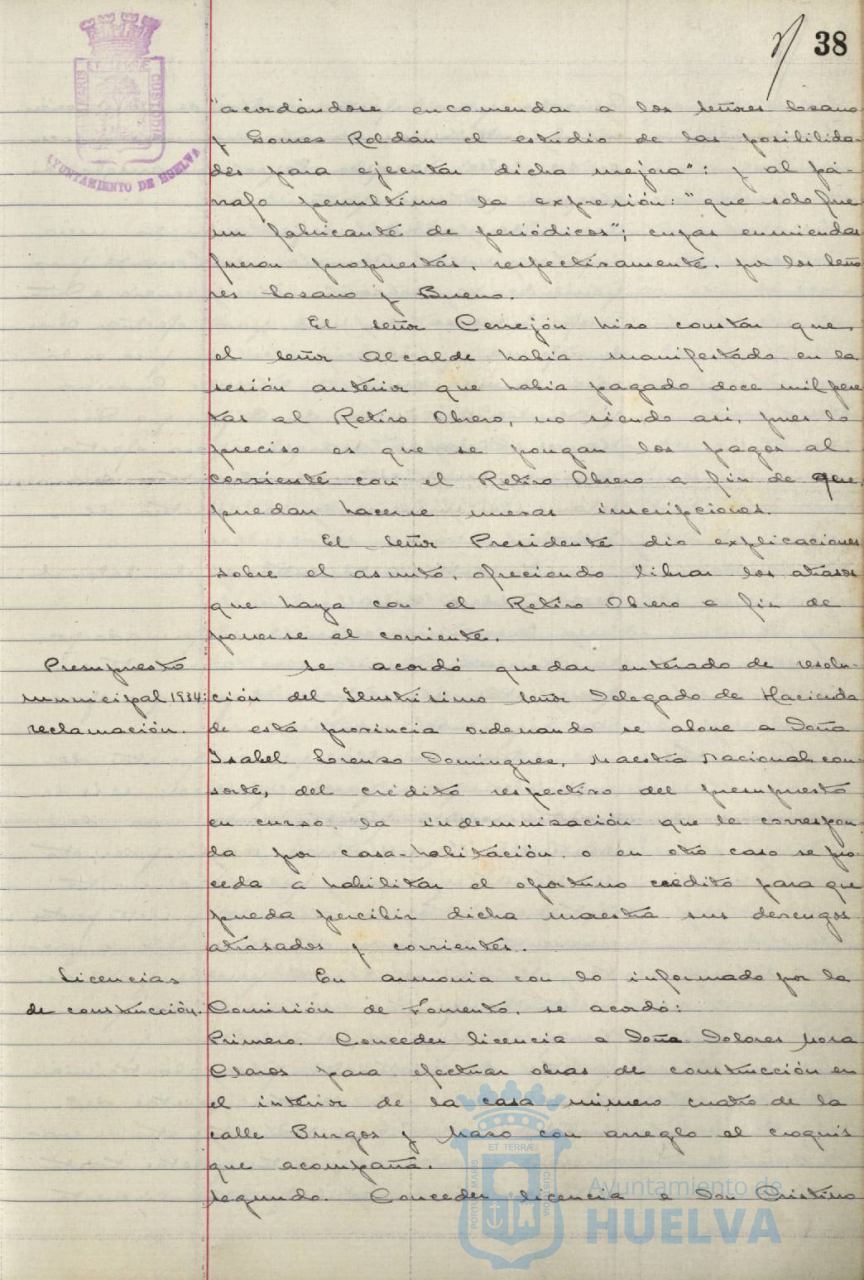 38
"acordándose encomendar a los señores Losano
y Gomes Roldán el estudio de las posibilida-
des para ejecutar dicha mejora": y al pá-
rrafo penultimo la expresión: "que solo fue
un fabricante de periódicos"; cuyas enmiendas
fueron propuestas, respectivamente, por los seño
res Losano y Bueno.
El señor Cerrejón hizo constar que,
el señor Alcalde habia manifestado en la
sesión anterior que habia pagado doce mil pese
tas al Retiro Obrero, no siendo asi, pues lo
preciso es que se pongan los pagos al
corriente con el Retiro Obrero a fin de que,
puedan hacerse nuevas inscripciones.
El señor Presidente dio explicaciones
sobre el asunto, ofreciendo librar los atrasos
que haya con el Retiro Obrero a fin de
ponerse al corriente.
Presupuesto
municipal 1934:
reclamación.
Se acordó quedar enterado de resolu-
ción del Ilustrisimo señor Delegado de Hacienda
de esta provincia ordenando se abone a Doña
Isabel Lorenzo Dominguez, Maestra Nacional con-
sorte, del crédito respectivo del presupuesto
en curso, la indemnización que le correspon-
da por casa-habitación, o en otro caso se pro-
ceda a habilitar el oportuno crédito para que
pueda percibir dicha maestra sus devengos
atrasados y corrientes.
Licencias
de construcción.
En armonia con lo informado por la
Comisión de Fomento, se acordó:
Primero. Conceder licencia a Doña Dolores Mora
Claros para efectuar obras de construcción en
el interior de la casa número cuatro de la
calle Burgos y Mazo con arreglo al croquis
que acompaña.
Segundo. Conceder licencia a Don Cristino
AYUNTAMIENTO DE HUELVA
ET TERRÆ
PORTUS MARIS
CUSTODIA
Ayuntamiento de
HUELVA